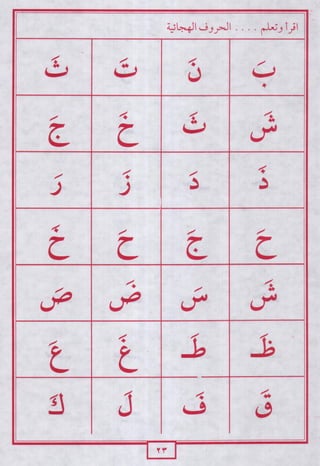 اقرأ وتعلم .... الحروف الهجائية
بَ نَ تَ ثَ
شَ ثَ خَ جَ
ذَ دَ زَ رَ
حَ جَ حَ خَ
شَ سَ ضَ صَ
ظَـ طَـ غَ عَ
قَ فَ لَ كَ
٢٣